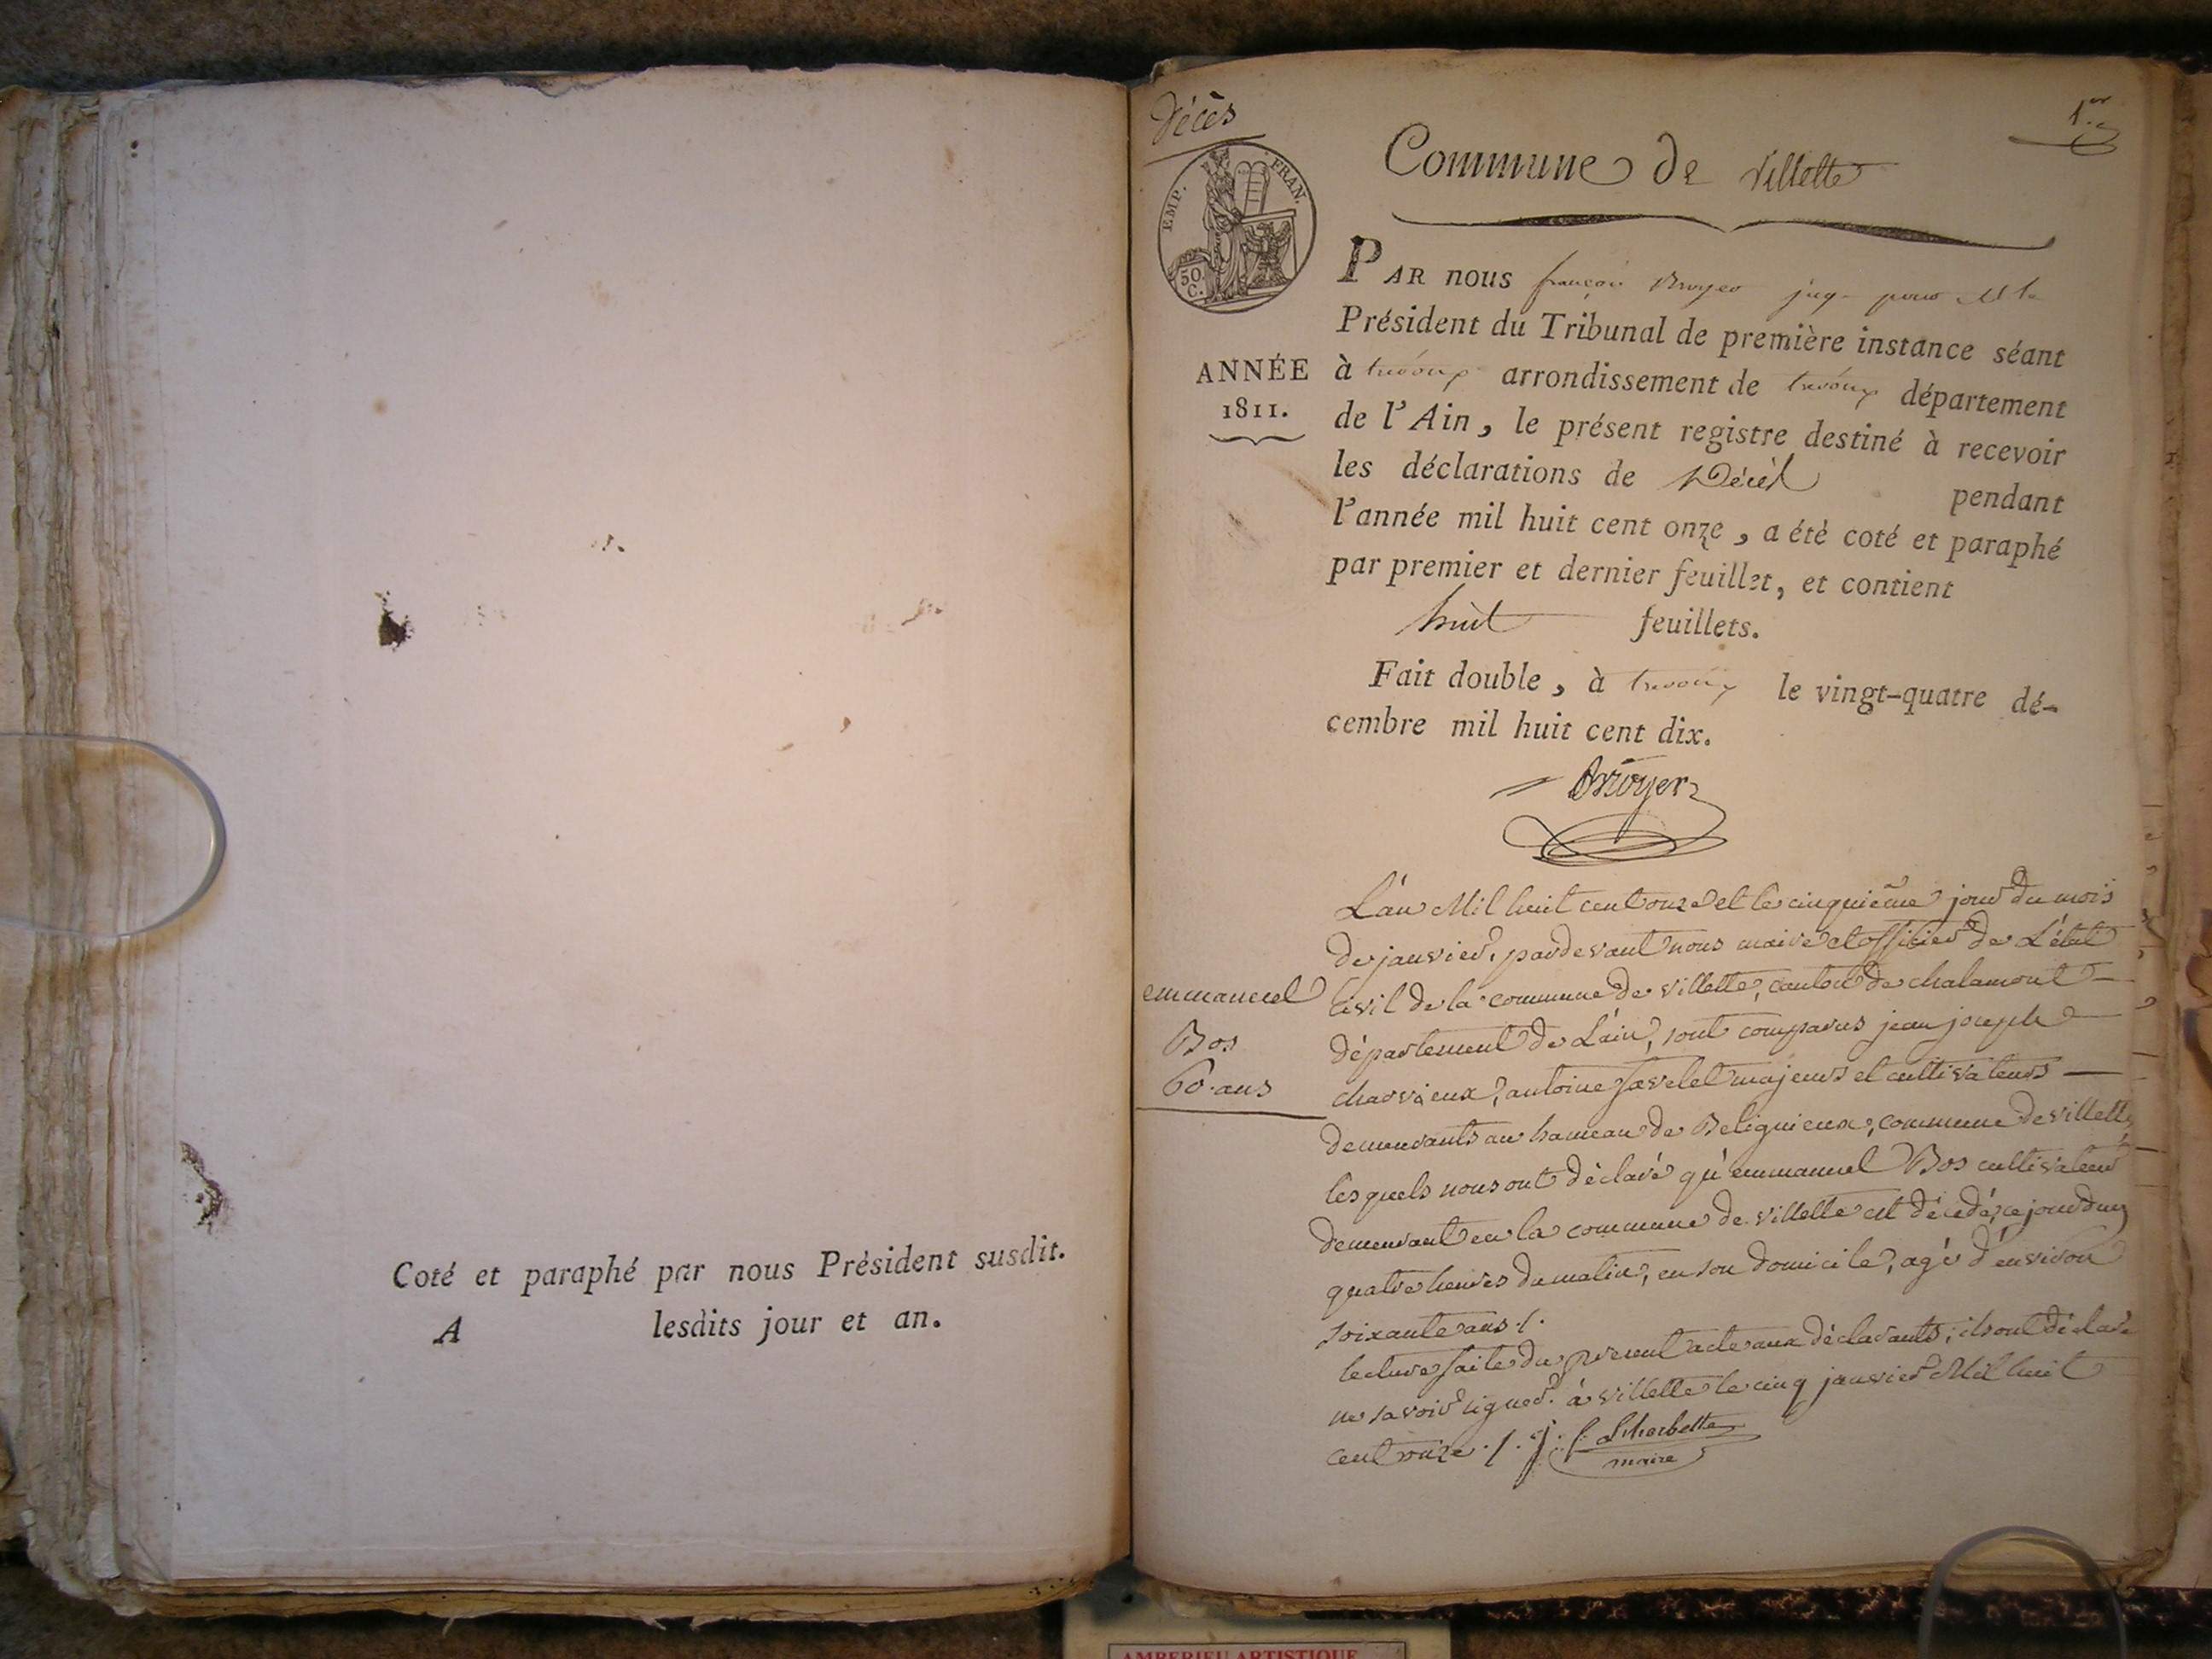 Coté et paraphé par nous Président susdit.
A lesdits jour et an.
décès
1.er
EMP. FRAN.
50 C.
Commune de villette
PAR nous françois Broyer juge pour M le
Président du Tribunal de première instance séant
ANNÉE
1811.
à trévoux arrondissement de trévoux département
de l'Ain, le présent registre destiné à recevoir
les déclarations de Décès pendant
l'année mil huit cent onze, a été coté et paraphé
par premier et dernier feuillet, et contient
huit feuillets.
Fait double, à trévoux le vingt-quatre dé-
cembre mil huit cent dix.
Broyer
emmanuel
Bos
60. ans
L'an Mil huit cent onze et le cinquième jour du mois
de janvier, pardevant nous maire et officier de L'état
civil de la commune de villette, canton de chalamont
département de L'ain, sont comparus jean joseph
charvieux, antoine favelet majeurs et cultivateurs
demeurants au hameau de Beligneux, commune de villette
lesquels nous ont déclaré qu'emmanuel Bos cultivateur
demeurant en la commune de villette est décédé, ce jourduy
quatre heures du matin, en son domicile, agé d'environ
soixante ans./.
lecture faite du present acte aux déclarants, ils ont déclaré
ne savoir signer. à villette le cinq janvier Mil huit
cent onze./. J. f. Lherbette
maire
AMBERIEU ARTISTIQUE